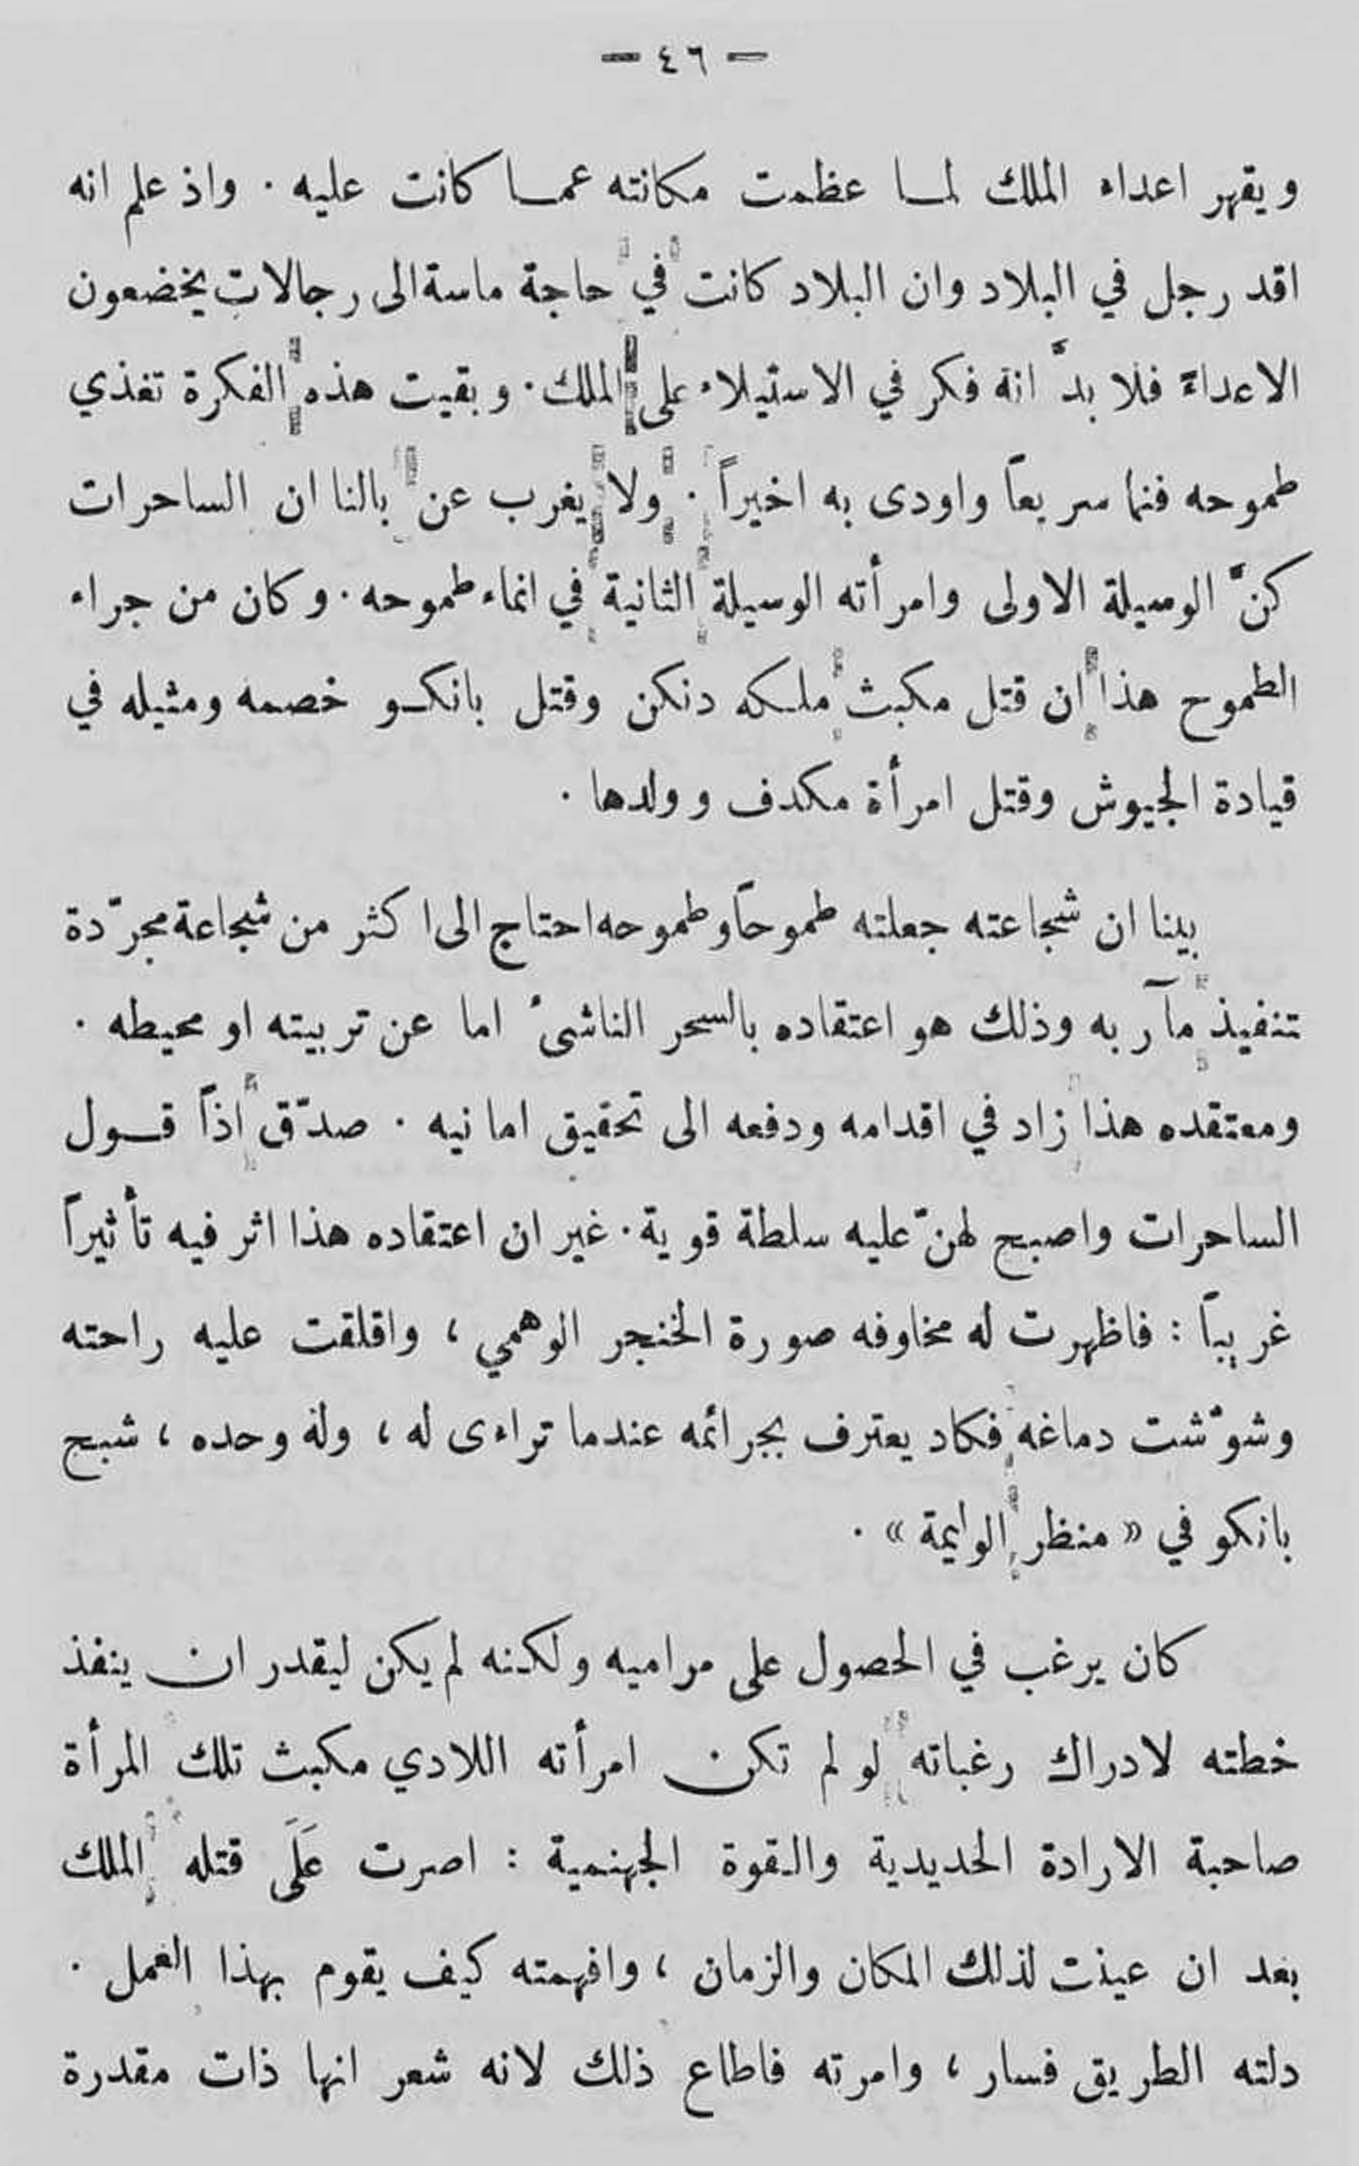 — ٤٦ —
ويقهر اعداء الملك لما عظمت مكانته عما كانت عليه . واذ علم انه
اقد رجل في البلاد وان البلاد كانت في حاجة ماسة الى رجالات يخضعون
الاعداء فلا بدَّ انه فكر في الاستيلاء على الملك . وبقيت هذه الفكرة تغذي
طموحه فنما سريعاً واودى به اخيراً . ولا يغرب عن بالنا ان الساحرات
كنَّ الوسيلة الاولى وامرأته الوسيلة الثانية في انماء طموحه . وكان من جراء
الطموح هذا ان قتل مكبث ملكه دنكن وقتل بانكو خصمه ومثيله في
قيادة الجيوش وقتل امرأة مكدف وولدها .
بينا ان شجاعته جعلته طموحاً وطموحه احتاج الى اكثر من شجاعة مجرّدة
تنفيذ مآربه وذلك هو اعتقاده بالسحر الناشئ اما عن تربيته او محيطه .
ومعتقده هذا زاد في اقدامه ودفعه الى تحقيق امانيه . صدّق اذاً قول
الساحرات واصبح لهنّ عليه سلطة قوية . غير ان اعتقاده هذا اثر فيه تأثيراً
غريباً : فاظهرت له مخاوفه صورة الخنجر الوهمي ، واقلقت عليه راحته
وشوّشت دماغه فكاد يعترف بجرائمه عندما تراءى له ، وله وحده ، شبح
بانكو في « منظر الوليمة » .
كان يرغب في الحصول على مراميه ولكنه لم يكن ليقدر ان ينفذ
خطته لادراك رغباته لو لم تكن امرأته اللادي مكبث تلك المرأة
صاحبة الارادة الحديدية والقوة الجهنمية : اصرت عَلَى قتله الملك
بعد ان عينت لذلك المكان والزمان ، وافهمته كيف يقوم بهذا العمل .
دلته الطريق فسار ، وامرته فاطاع ذلك لانه شعر انها ذات مقدرة